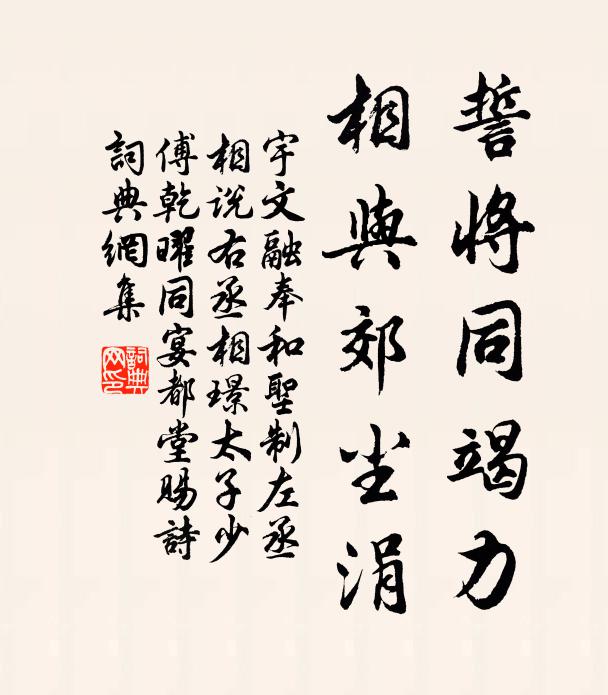 誓將同竭力
相與郊尘涓
宇文融奉和聖制左丞
相说右丞相璟太子少
傅乾曜同宴都堂賜詩
詞典網集
詞典
网印